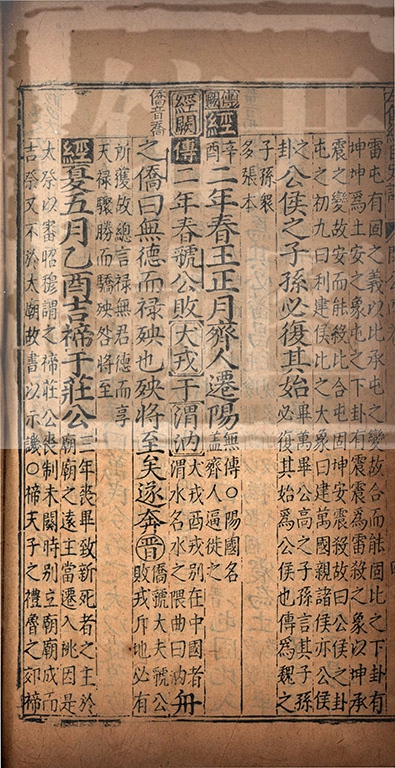 雷屯有固之義以比承屯之變故合而能固比之下卦有
坤坤為土安之象屯之下卦有震震為雷殺之象以坤承
震之變故安而能殺比合屯固坤安震殺故曰公侯之卦
屯之初九曰利建侯比之大象曰建萬國親諸侯亦公侯
之卦公侯之子孫必復其始畢萬畢公高之子孫言其子孫
必復其始為公侯也傳為魏之
子孫衆
多張本
傳闕
經辛酉二年春王正月齊人遷陽無傳○陽國名
蓋齊人逼徙之
經闕
傳二年春虢公敗犬戎于渭汭犬戎戎別在中國者
渭水名水之隈曲曰汭舟
僑音喬
之僑曰無德而祿殃也殃將至矣遂奔晉僑虢大夫虢公
敗戎斥地必有
所獲故總言祿無君德而享
天祿驟勝而驕殃咎將至
經夏五月乙酉吉禘于莊公三年喪畢致新死者之主於
廟廟之遠主當遷入祧因是
太祭以審昭穆謂之禘莊公喪制未闋時別立廟廟成而
吉祭又不於太廟故書以示譏○禘天子之禮魯之郊禘